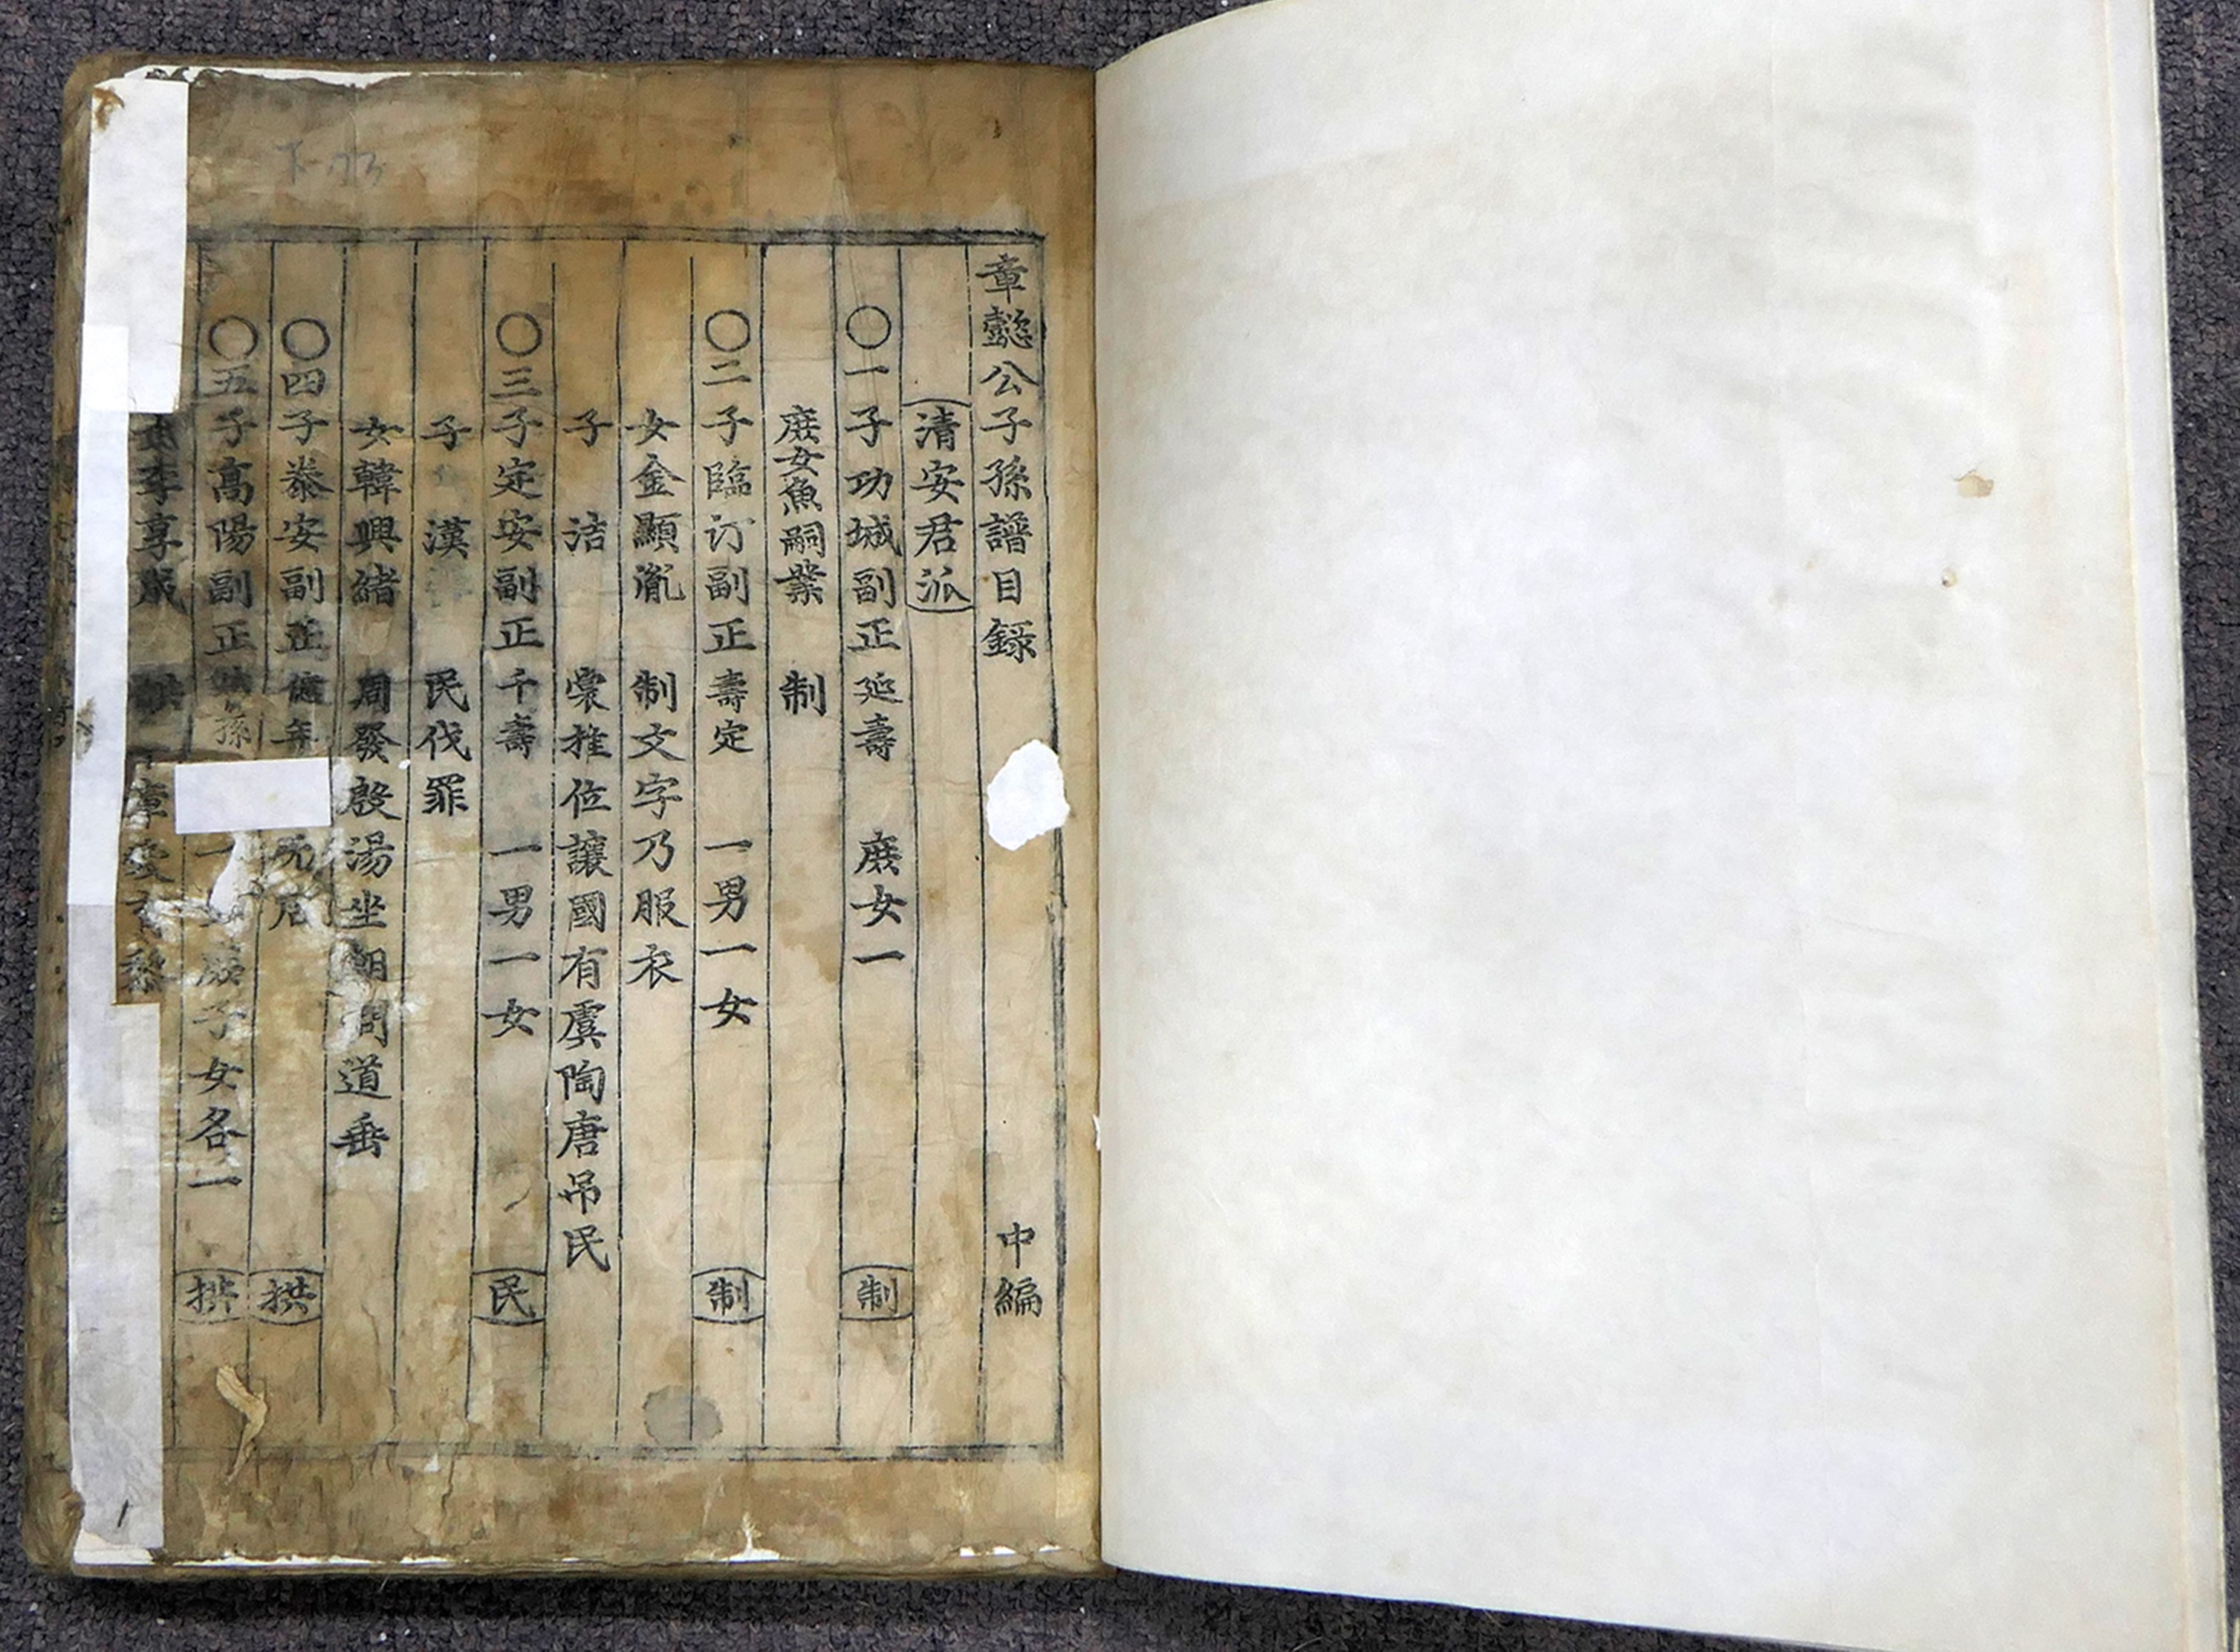 章懿公子孫譜目録 中編
清安君派
〇一子功城副正延壽 庶女一 制
庶女魚嗣業 制
〇二子臨汀副正壽定 一男一女 制
女金顯胤 制文字乃服衣
子 洁 裳推位讓國有虞陶唐吊民
〇三子定安副正千壽 一男一女 民
子 漢 民伐罪
女韓興緒 周發殷湯坐朝問道垂
〇四子泰安副正 年 无后 拱
〇五子高陽副正 孫 一 子女各一 拱
李享成 拱 章愛育黎